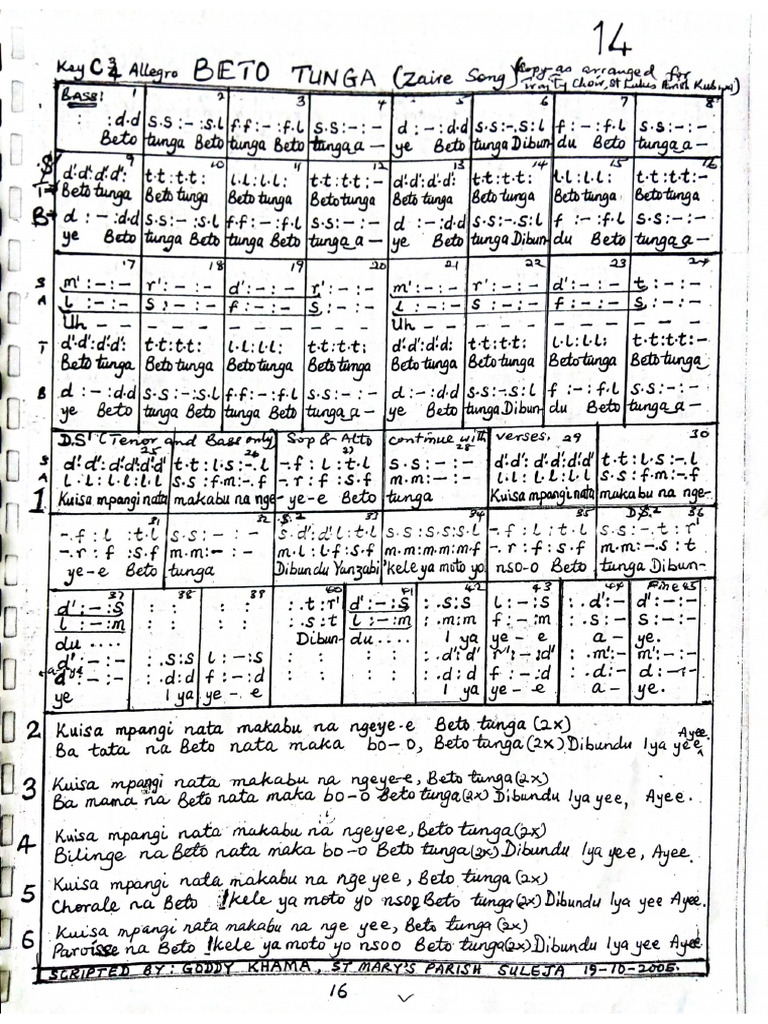 14
Key C 3/4 Allegro BETO TUNGA (Zaire Song) (Copy as arranged for
Trinity Choir, St Lukes Parish Kubwa)
BASS: 1 2 3 4 5 6 7 8
: :d.d s.s:-:s.l f.f:-:f.l s.s:-:- d:-:d.d s.s:-.s:l f:-:f.l s.s:-:-
Beto tunga Beto tunga Beto tunga a — ye Beto tunga Dibun du Beto tunga a —
9 10 11 12 13 14 15 16
T d'.d':d'.d': t.t:t.t: l.l:l.l: t.t:t.t:- d'.d':d'.d': t.t:t.t: l.l:l.l: t.t:t.t:-
Beto tunga Beto tunga Beto tunga Beto tunga Beto tunga Beto tunga Beto tunga Beto tunga
B d:-:d.d s.s:-:s.l f.f:-:f.l s.s:-:- d:-:d.d s.s:-.s:l f:-:f.l s.s:-:-
ye Beto tunga Beto tunga Beto tunga a — ye Beto tunga Dibun- du Beto tunga a —
17 18 19 20 21 22 23 24
S m':-:- r':-:- d':-:- r':-:- m':-:- r':-:- d':-:- t:-:-
A l:-:- s:-:- f:-:- s:-:- l:-:- s:-:- f:-:- s:-:-
Uh — — — — — — — Uh — — — — — — —
T d'.d':d'.d': t.t:t.t: l.l:l.l: t.t:t.t: d'.d':d'.d': t.t:t.t: l.l:l.l: t.t:t.t:-
Beto tunga Beto tunga Beto tunga Beto tunga Beto tunga Beto tunga Beto tunga Beto tunga
B d:-:d.d s.s:-:s.l f.f:-:f.l s.s:-:- d:-:d.d s.s:-.s:l f:-:f.l s.s:-:-
ye Beto tunga Beto tunga Beto tunga a — ye Beto tunga Dibun- du Beto tunga a —
D.S' (Tenor and Bass only Sop & Alto continue with verses.
25 26 27 28 29 30
S d'.d':d'.d':d'.d' t.t:l.s:-.l -.f:l:t.l s.s:-:- d'.d':d'.d':d'.d' t.t:l.s:-.l
A l.l:l.l:l.l s.s:f.m:-.f -.r:f:s.f m.m:-:- l.l:l.l:l.l s.s:f.m:-.f
1 Kuisa mpangi nata makabu na nge- ye-e Beto tunga Kuisa mpangi nata makabu na nge-
31 32 S.2 33 34 35 D.S.2 36
-.f:l:t.l s.s:-:- s.d':d'.l:t.l s.s:s.s:s.l -.f:l:t.l s.s:-.t:r'
-.r:f:s.f m.m:-:- m.l:l.f:s.f m.m:m.m:m.f -.r:f:s.f m.m:-.s:t
ye-e Beto tunga Dibundu Yanzabi 'kele ya moto yo nso-o Beto tunga Dibun-
37 38 39 40 41 42 43 44 Fine 45
d':-:s : : : : :.t:r' d':-:s :.s:s l:-:s :.d':- d':-:-
l:-:m : : : : :.s:t l:-:m :.m:m f:-:m :.s:- s:-:-
du .... Dibun- du .... 1 ya ye-e a — ye.
d':-:- :.s:s l:-:s : : : : :.d':d' r':-:d' :.m':- m':-:-
d:-:- :.d:d f:-:d : : : : :.d:d f:-:d :.d:- d:-:-
ye 1 ya ye-e 1 ya ye-e a — ye.
2 Kuisa mpangi nata makabu na ngeye-e Beto tunga (2x)
Ba tata na Beto nata maka bo-o, Beto tunga (2x) Dibundu 1ya yee, Ayee.
3 Kuisa mpangi nata makabu na ngeye-e, Beto tunga (2x)
Ba mama na Beto nata maka bo-o Beto tunga (2x) Dibundu 1ya yee, Ayee.
4 Kuisa mpangi nata makabu na ngeyee, Beto tunga (2x)
Bilinge na Beto nata maka bo-o Beto tunga (2x) Dibundu 1ya yee, Ayee.
5 Kuisa mpangi nata makabu na nge yee, Beto tunga (2x)
Chorale na Beto !kele ya moto yo nsoo Beto tunga (2x) Dibundu 1ya yee Ayee.
6 Kuisa mpangi nata makabu na nge yee, Beto tunga (2x)
Paroisse na Beto !kele ya moto yo nsoo Beto tunga (2x) Dibundu 1ya yee Ayee
SCRIPTED BY: GODDY KHAMA, ST MARY'S PARISH SULEJA 19-10-2005.
16